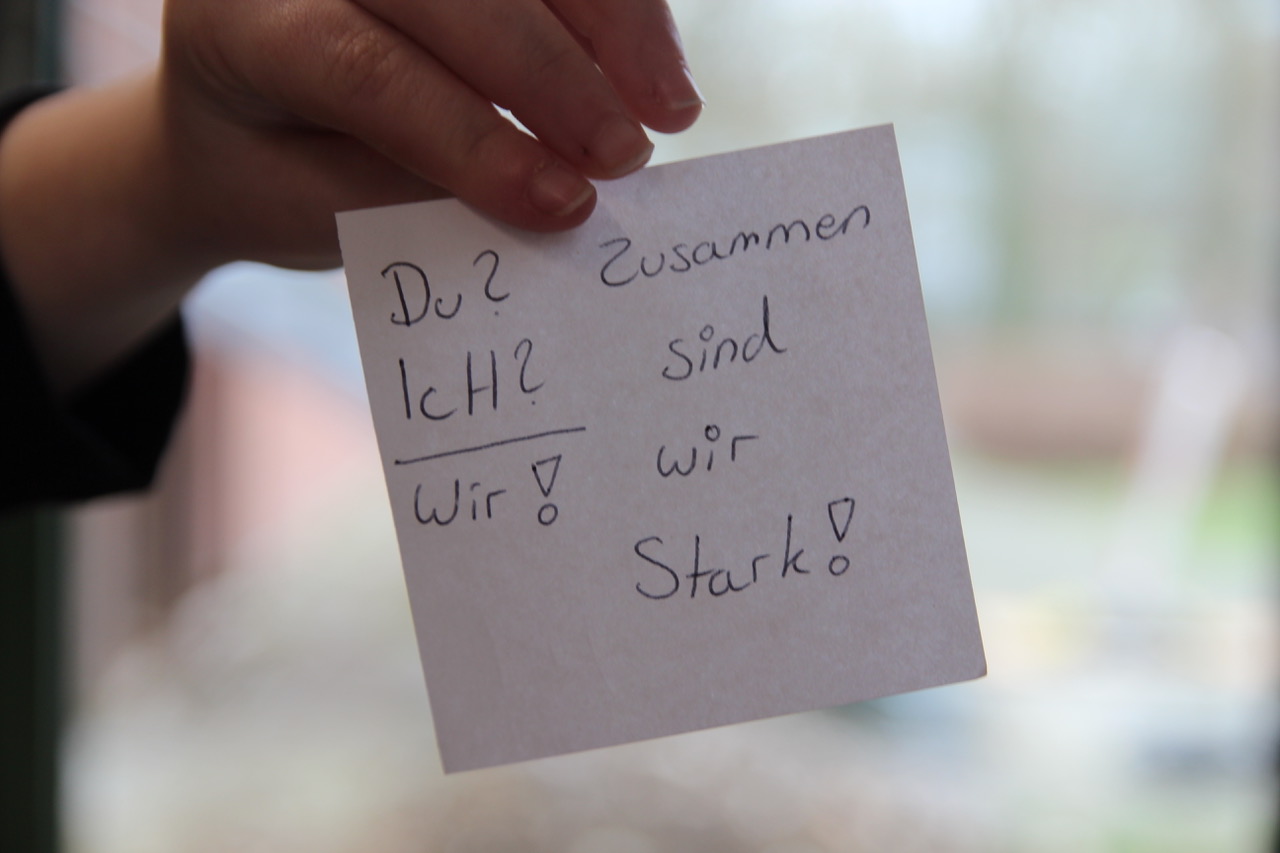 Du?
IcH?
Wir!
Zusammen
sind
wir
Stark!